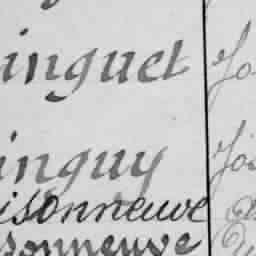 inguet Jo
inguy Jos
isonneuve
sonneuve